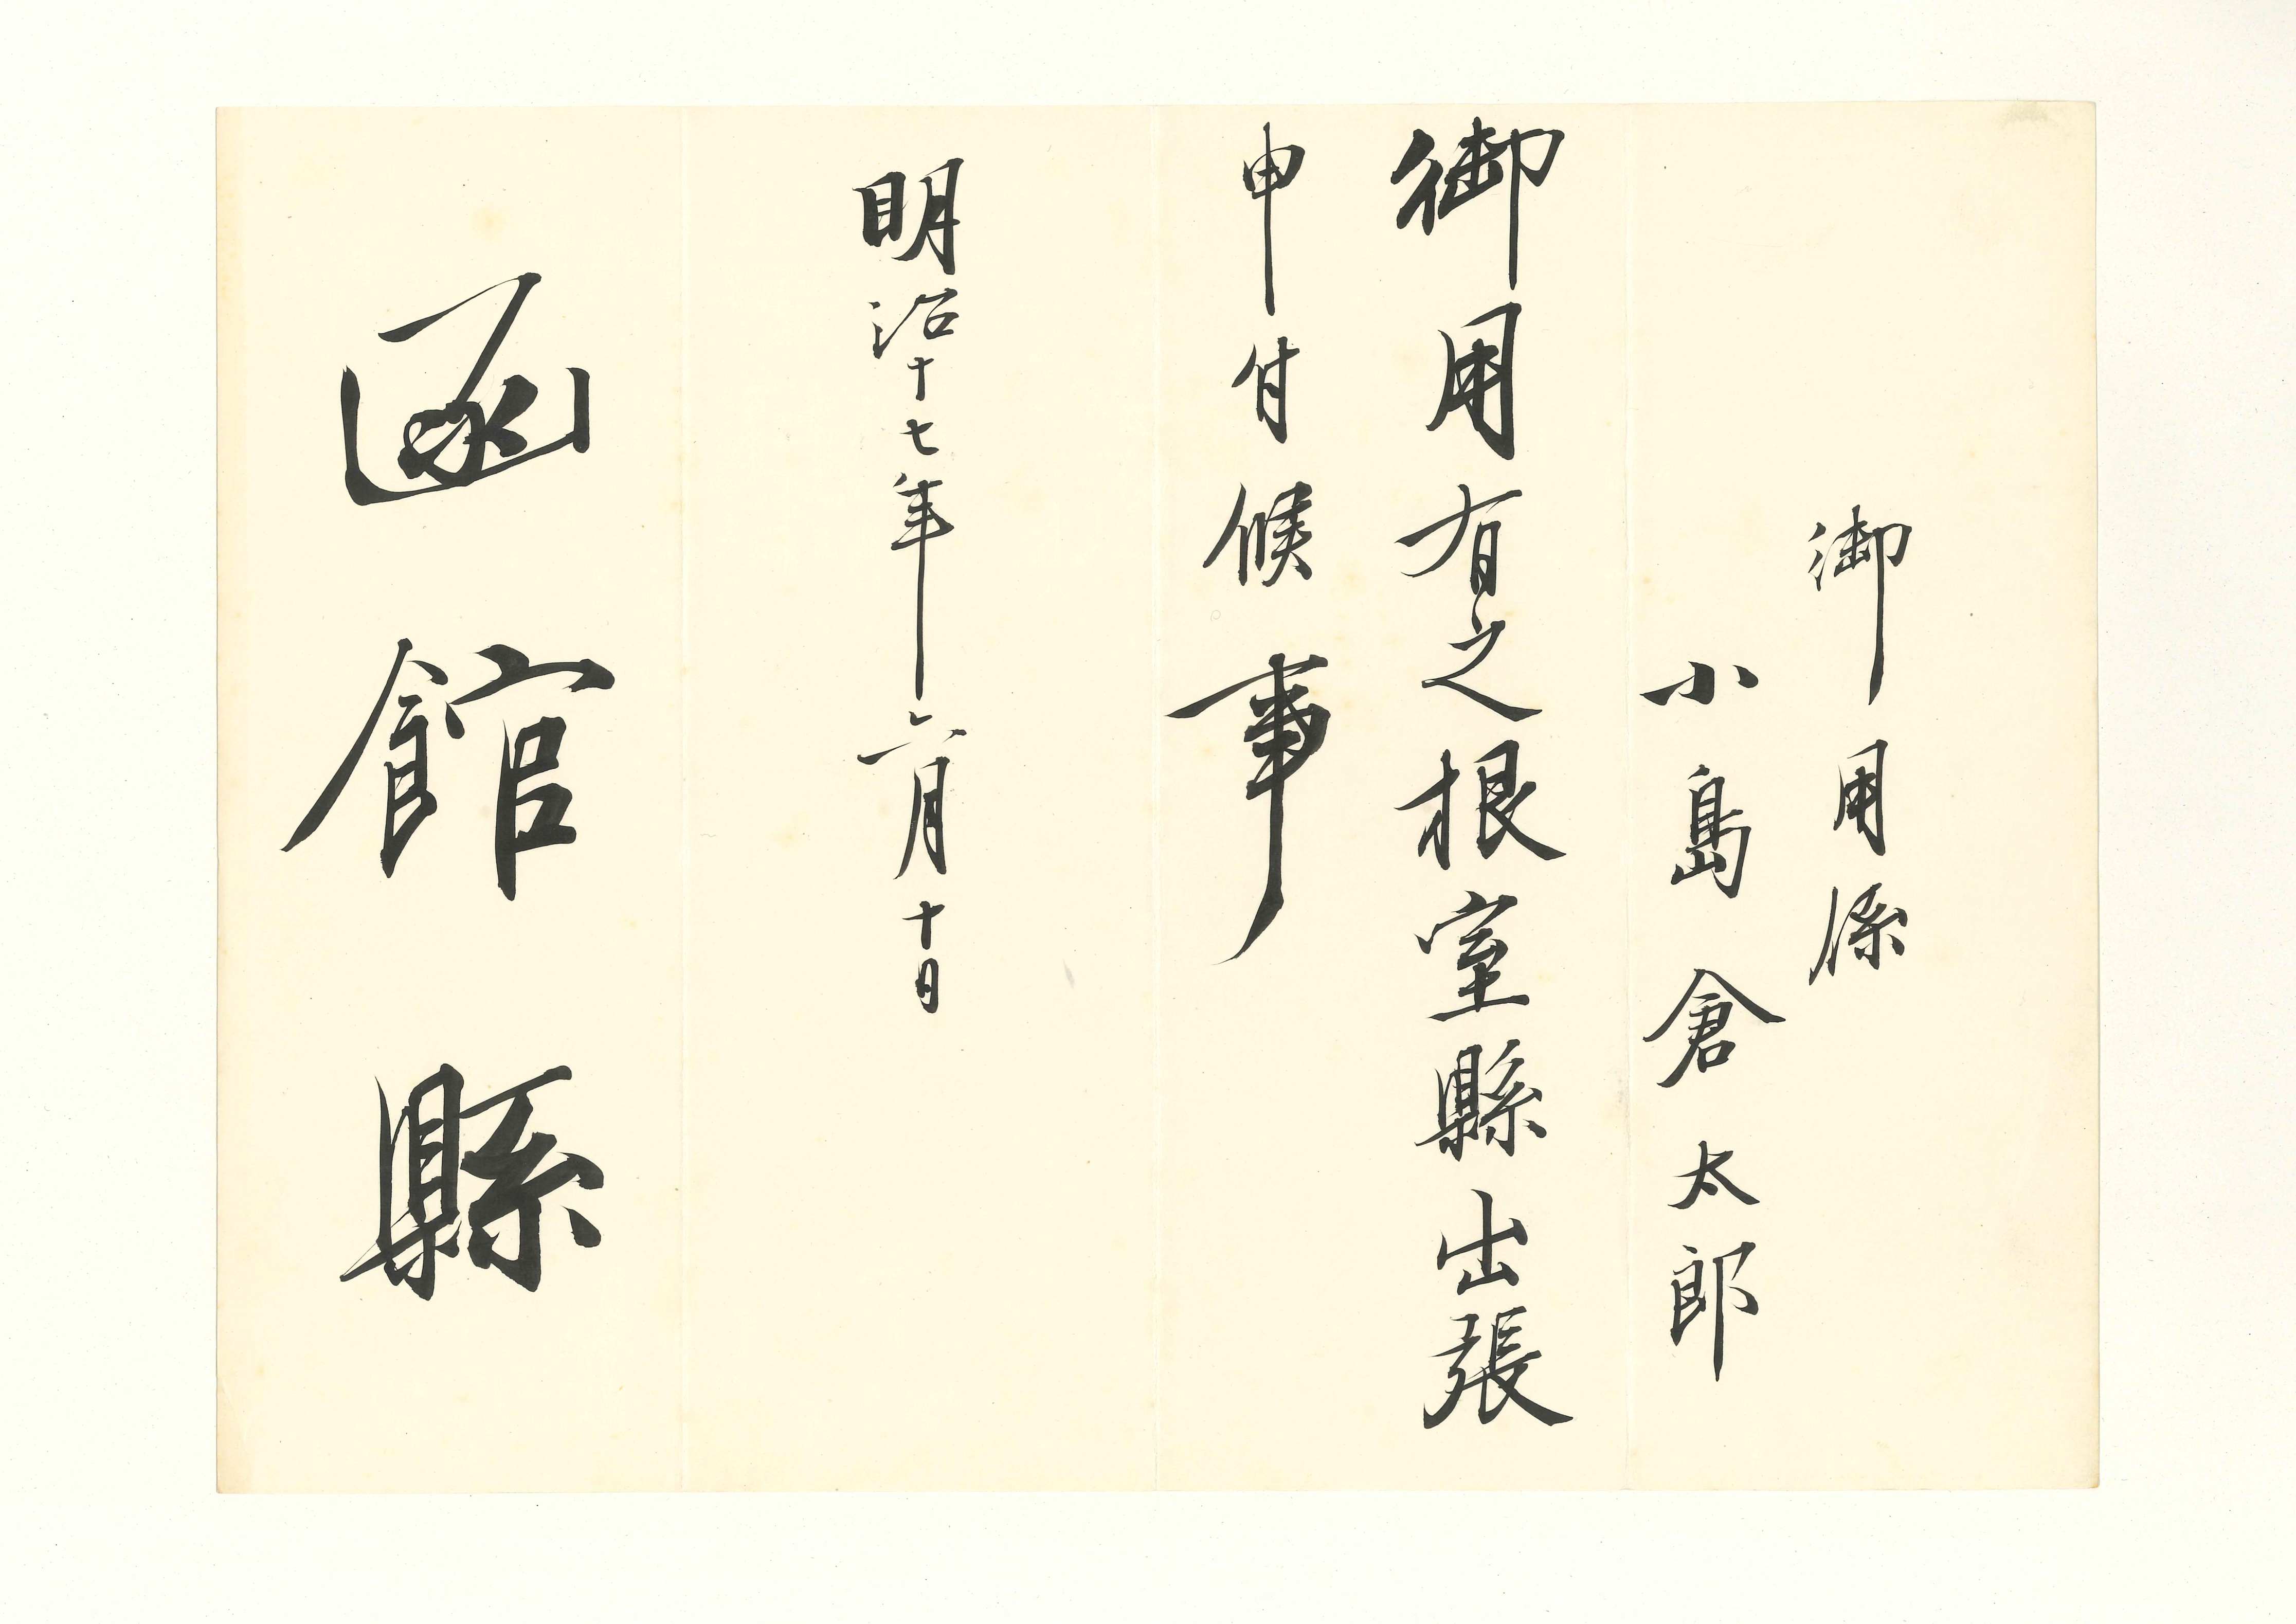 御用係
小島倉太郎
御用有之根室縣出張
申付候事
明治十七年六月十日
函館縣